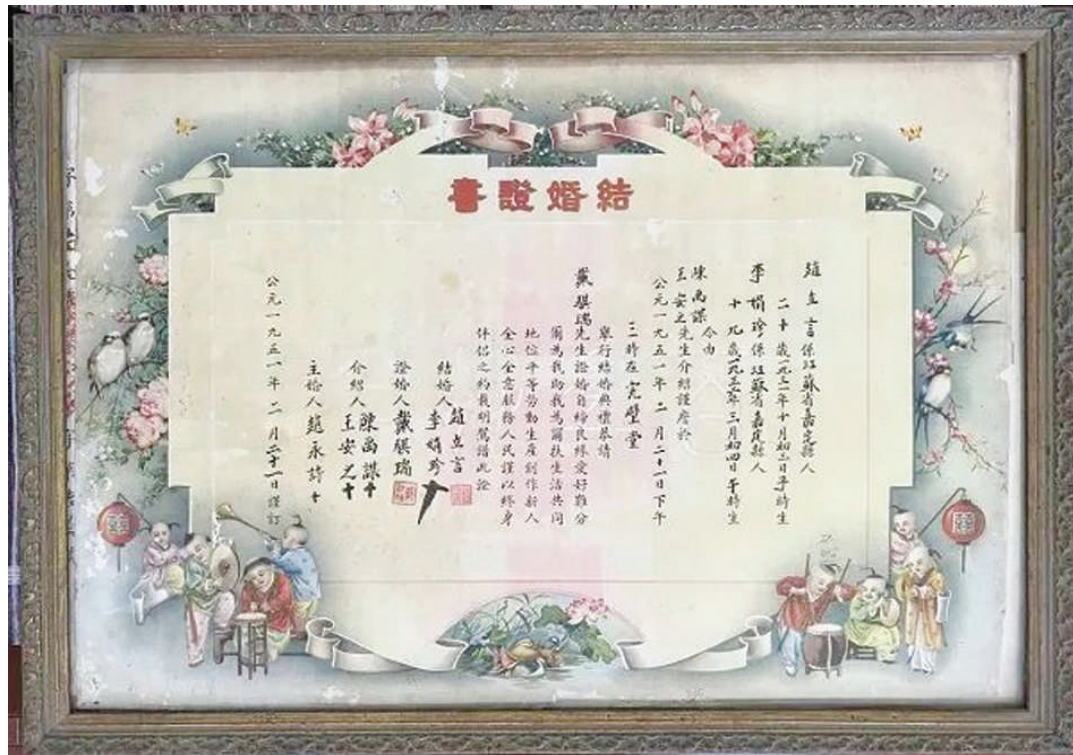 結婚證書
趙立言係江蘇省嘉定縣人
二十歲一九三一年十月初三日子時生
李娟珍係江蘇省嘉定縣人
十九歲一九三二年三月初四日子時生
今由
陳禹謀
王安之先生介紹謹詹於
公元一九五一年二月二十一日下午
三時在完璧堂
舉行結婚典禮恭請
戴騏瑞先生證婚自締良緣愛好難分
爾為我助我為爾扶生活共同
地位平等勞動生產創作新人
全心全意服務人民謹以終身
伴侶之約載明鴛譜此證
結婚人 趙立言
李娟珍 十
證婚人 戴騏瑞
介紹人 陳禹謀 十
王安之 十
主婚人 趙永詩 十
公元一九五一年二月二十一日謹訂